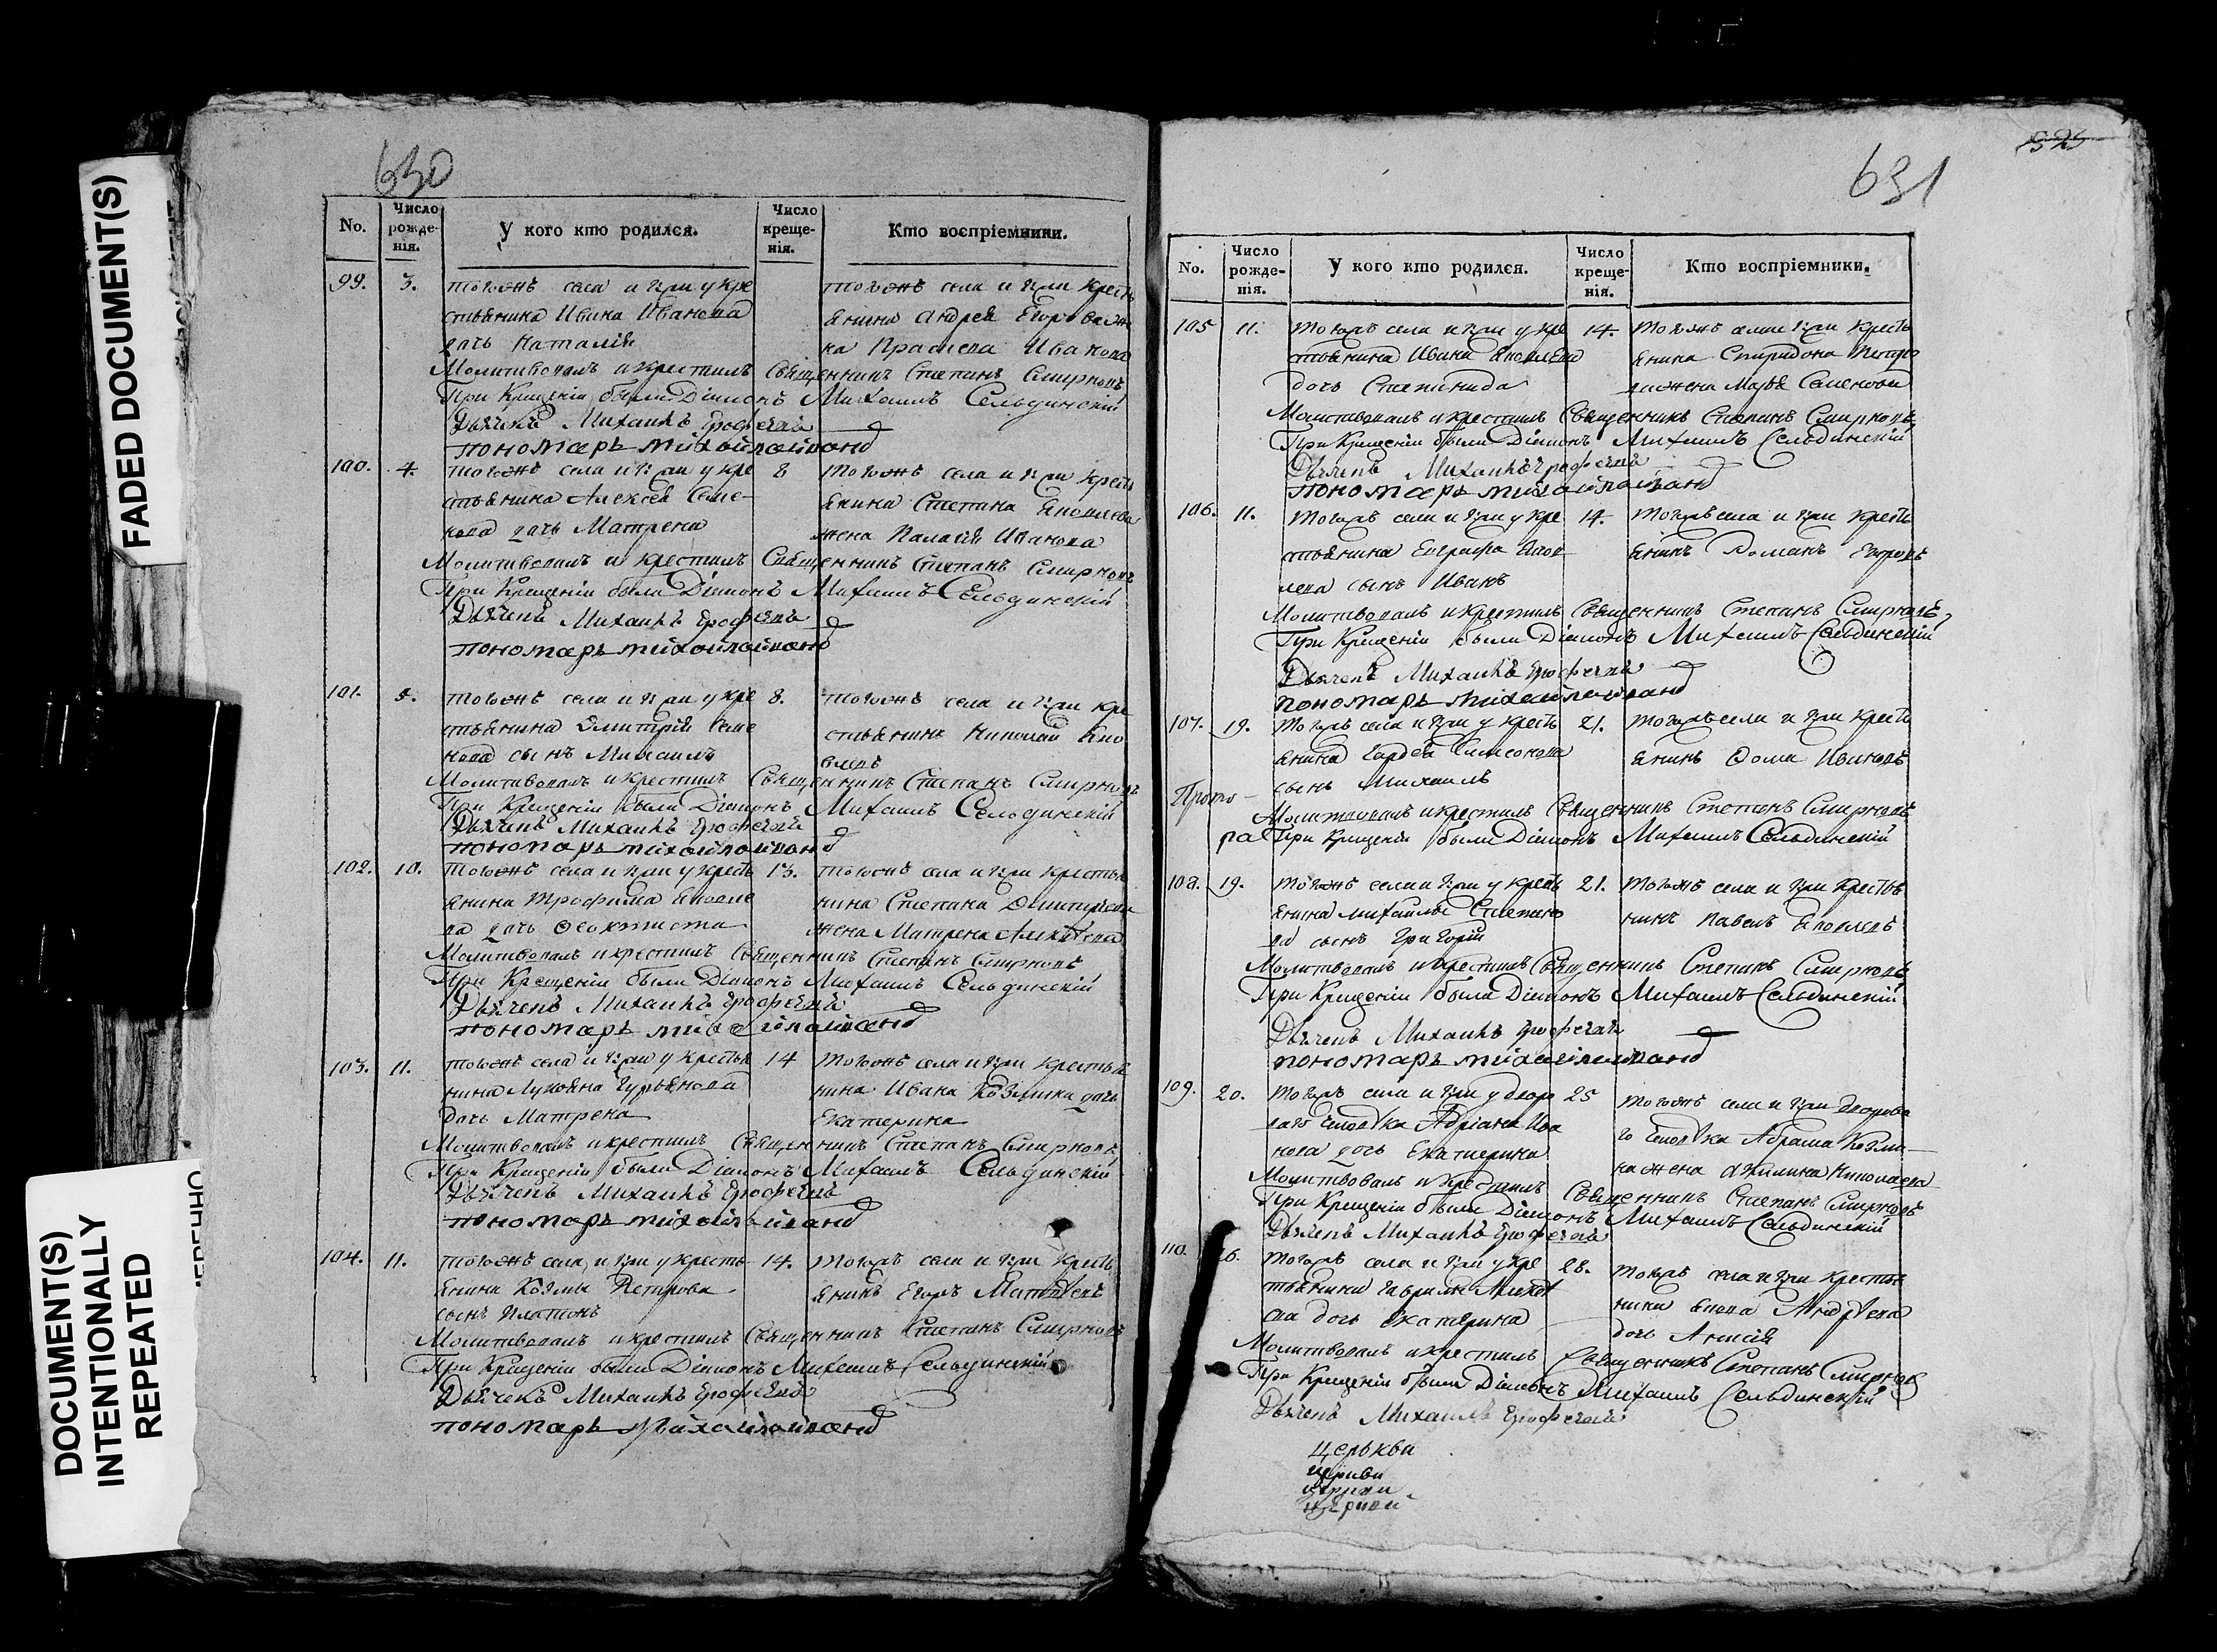 FADED DOCUMENT(S)
DOCUMENT(S)
INTENTIONALLY
REPEATED
630
No.
Число рожде-нія.
У кого кто родился.
Число креще-нія.
Кто воспріемники.
99. 3. тогожъ села и при у кре
стьянина Ивана Иванова
дочь Наталія
тогожъ села и при кресть
янина Андрея Егорова же
на Ивакова
Молитвовалъ и крестилъ Священникъ Степанъ Смирновъ
При Крещеніи были Діаконъ Михаилъ Сельдинскій
Дьячекъ Михаилъ Ерофеевъ
пономарь михайла ивановъ
100. 4. тогожъ села и при у кре
стьянина Алексея Семе-
нова дочь Матрена
8 тогожъ села и при кресть
янина Степана Яковлева
жена Палагія Иванова
Молитвовалъ и крестилъ Священникъ Степанъ Смирновъ
При Крещеніи были Діаконъ Михаилъ Сельдинскій
Дьячекъ Михаилъ Ерофеевъ
пономарь михайла ивановъ
101. 5. тогожъ села и при у кре
стьянина Дмитрія Семе
нова сынъ Михаилъ
8. тогожъ села и при кре
стьянинъ Николай Яко
влевъ
Молитвовалъ и крестилъ Священникъ Степанъ Смирновъ
При Крещеніи были Діаконъ Михаилъ Сельдинскій
Дьячекъ Михаилъ Ерофеевъ
пономарь михайла ивановъ
102. 10. тогожъ села и при у кресть
янина Трофима Яковле
ва дочь Феоктиста
13. тогожъ села и при крестья
нина Степана Дмитріева
жена Матрена Алексѣева
Молитвовалъ и крестилъ Священникъ Степанъ Смирновъ
При Крещеніи были Діаконъ Михаилъ Сельдинскій
Дьячекъ Михаилъ Ерофеевъ
пономарь михайла ивановъ
103. 11. тогожъ села и при у крестья
нина Лукьяна Гурьянова
дочь Матрена
14 тогожъ села и при крестья
нина Ивана Козмина дочь
Екатерина
Молитвовалъ и крестилъ Священникъ Степанъ Смирновъ
При Крещеніи были Діаконъ Михаилъ Сельдинскій
Дьячекъ Михаилъ Ерофеевъ
пономарь михайла ивановъ
104. 11. тогожъ села и при у кресть
янина Козмы Петрова
сынъ Платонъ
14. тогожъ села и при кресть
янинъ Егоръ Матвѣевъ
Молитвовалъ и крестилъ Священникъ Степанъ Смирновъ
При Крещеніи были Діаконъ Михаилъ Сельдинскій
Дьячекъ Михаилъ Ерофеевъ
пономарь Михайла ивановъ
631
No.
Число рожде-нія.
У кого кто родился.
Число креще-нія.
Кто воспріемники.
105 11. тогожъ села и при у кре
стьянина Ивана Яковлева
дочь Степанида
14. тогожъ села и при кресть
янина Спиридона
жена Марья Семенова
Молитвовалъ и крестилъ Священникъ Степанъ Смирновъ
При Крещеніи были Діаконъ Михаилъ Сельдинскій
Дьячекъ Михаилъ Ерофеевъ
пономарь михайла ивановъ
106. 11. тогожъ села и при у кре
стьянина Евграфа Яков
лева сынъ Иванъ
14. тогожъ села и при кресть
янинъ Романъ Егоровъ
Молитвовалъ и крестилъ Священникъ Степанъ Смирновъ
При Крещеніи были Діаконъ Михаилъ Сельдинскій
Дьячекъ Михаилъ Ерофеевъ
пономарь михайла ивановъ
107. 19. тогожъ села и при у кресть
янина Гордея Самсонова
сынъ Михаилъ
21. тогожъ села и при кресть
янинъ Фома Ивановъ
Прото-
Молитвовалъ и крестилъ Священникъ Степанъ Смирновъ
При Крещеніи были Діаконъ Михаилъ Сельдинскій
108. 19. тогожъ села и при у кресть
янина Михайлы Степано
ва сынъ Григорій
21. тогожъ села и при крестья
нинъ Павелъ Яковлевъ
Молитвовалъ и крестилъ Священникъ Степанъ Смирновъ
При Крещеніи были Діаконъ Михаилъ Сельдинскій
Дьячекъ Михаилъ Ерофеевъ
пономарь михайла ивановъ
109. 20. тогожъ села и при у дворо
ваго человѣка Адріана Ива
нова дочь Екатерина
25 тогожъ села и при дворова
го человѣка Абрама Козми-
на жена Акилина Николаева
Молитвовалъ и крестилъ Священникъ Степанъ Смирновъ
При Крещеніи были Діаконъ Михаилъ Сельдинскій
Дьячекъ Михаилъ Ерофеевъ
110. 26. тогожъ села и при у кре
стьянина Гаврилы Алексѣ
ева дочь Екатерина
28. тогожъ села и при крестья
нина Якова Андрѣева
дочь Анисія
Молитвовалъ и крестилъ Священникъ Степанъ Смирновъ
При Крещеніи были Діаконъ Михаилъ Сельдинскій
Дьячекъ Михаилъ Ерофеевъ
Церькви